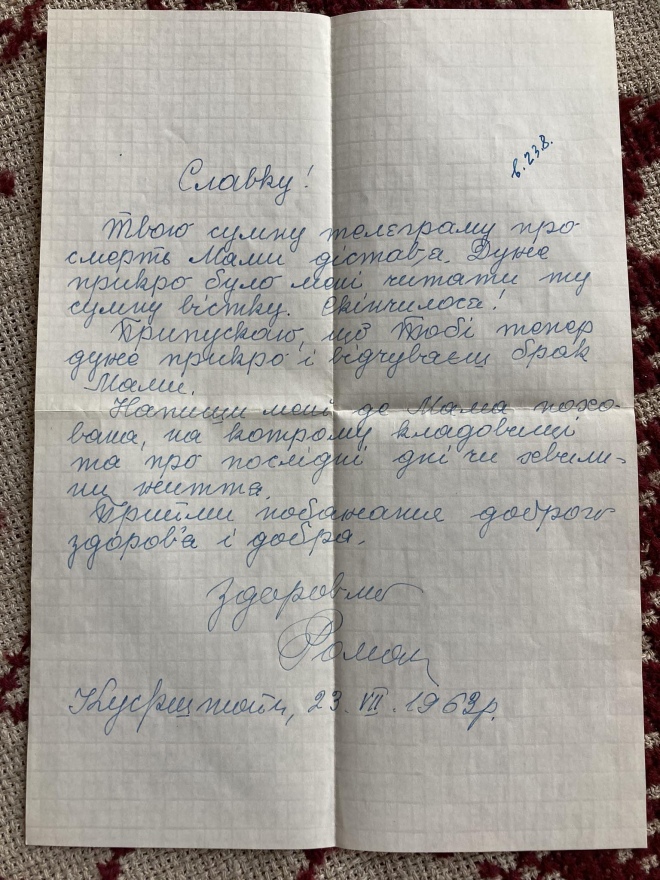 в. 23.8.
Славку!
Твою сумну телєграму про
смерть Мами дістав'а. Дуже
прикро було мені читати ту
сумну вістку. Скінчилося!
Припускаю, що Тобі тепер
дуже прикро і відчуваєш брак
Мами.
Напиши мені де Мама похо-
вана, на котрому кладовищі
та про послідні дні чи хвили-
ни життя.
Прийми побажання доброго
здоров'а і добра.
Здоровлю
Роман
23. VII. 1963р.